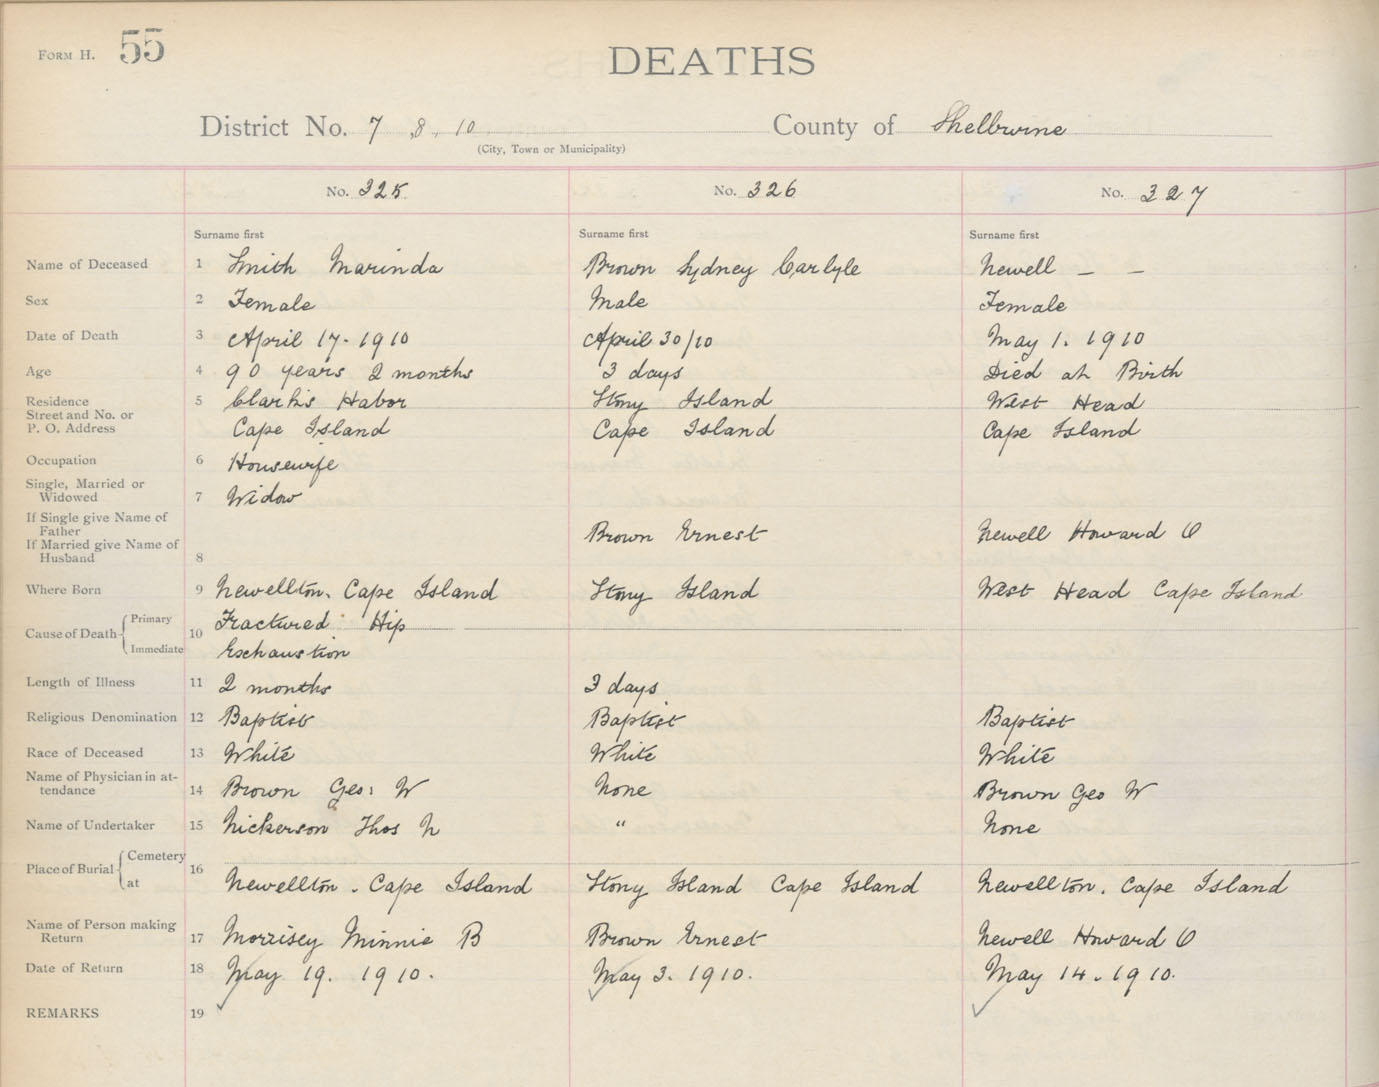 FORM H. 55
DEATHS
District No. 7 , 8, 10 County of Shelburne
(City, Town or Municipality)
No. 325 No. 326 No. 327
Surname first Surname first Surname first
Name of Deceased 1 Smith Marinda Brown Sydney Carlyle Newell — —
Sex 2 Female Male Female
Date of Death 3 April 17 - 1910 April 30/10 May 1. 1910
Age 4 90 years 2 months 3 days Died at Birth
Residence 5 Clark's Habor Stony Island West Head
Street and No. or
P. O. Address Cape Island Cape Island Cape Island
Occupation 6 Housewife
Single, Married or
Widowed 7 Widow
If Single give Name of
Father Brown Ernest Newell Howard O
If Married give Name of
Husband 8
Where Born 9 Newellton. Cape Island Stony Island West Head Cape Island
Cause of Death Primary 10 Fractured Hip
Immediate Exhaustion
Length of Illness 11 2 months 3 days
Religious Denomination 12 Baptist Baptist Baptist
Race of Deceased 13 White White White
Name of Physician in at-
tendance 14 Brown Geo: W None Brown Geo W
Name of Undertaker 15 Nickerson Thos N " None
Place of Burial Cemetery 16
at Newellton . Cape Island Stony Island Cape Island Newellton . Cape Island
Name of Person making
Return 17 Morrisey Minnie B Brown Ernest Newell Howard O
Date of Return 18 May 19. 1910. May 3. 1910. May 14. 1910.
REMARKS 19